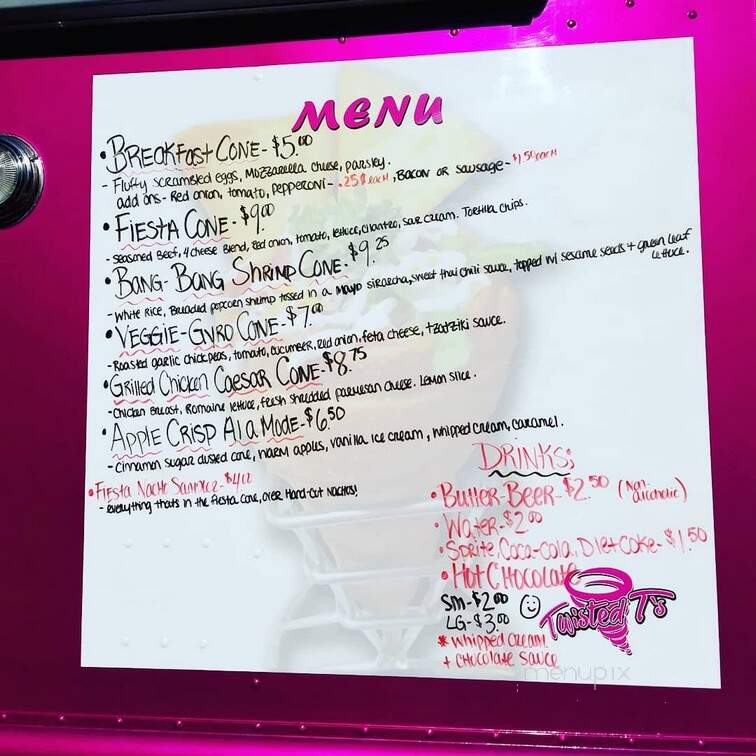 MENU
• BREAKFAST CONE - $5.00
- Fluffy scrambled eggs, Mozzarella cheese, parsley.
add ons - Red onion, tomato, pepperoni - .25¢ each, Bacon or sausage - $1.50 each
• FIESTA CONE - $9.00
- Seasoned Beef, 4 cheese Blend, Red onion, tomato, lettuce, cilantro, sour cream. Tortilla chips.
• BANG-BANG SHRIMP CONE - $9.25
- White Rice, Breaded popcorn shrimp tossed in a Mayo siracha, sweet thai chili sauce, topped w/ sesame seeds + green leaf
lettuce.
• VEGGIE-GYRO CONE - $7.00
- Roasted garlic chickpeas, tomato, cucumber, Red onion, feta cheese, tzatziki sauce.
• Grilled Chicken Caesar CONE - $8.75
- Chicken Breast, Romaine lettuce, fresh shredded parmesan cheese. Lemon slice.
• APPLE CRISP Al a Mode - $6.50
- Cinnamon sugar dusted cone, warm apples, vanilla ice cream, whipped cream, caramel.
• Fiesta Nacho - $4.00
- everything that's in the fiesta cone, over Hand-cut nachos!
DRINKS:
• Butter-Beer - $2.50 (Non-alcoholic)
• Water - $2.00
• Sprite, Coca-cola, Diet Coke - $1.50
• Hot Chocolate
Sm - $2.00
LG - $3.00
* whipped cream
+ chocolate sauce
Twisted T's
menupix